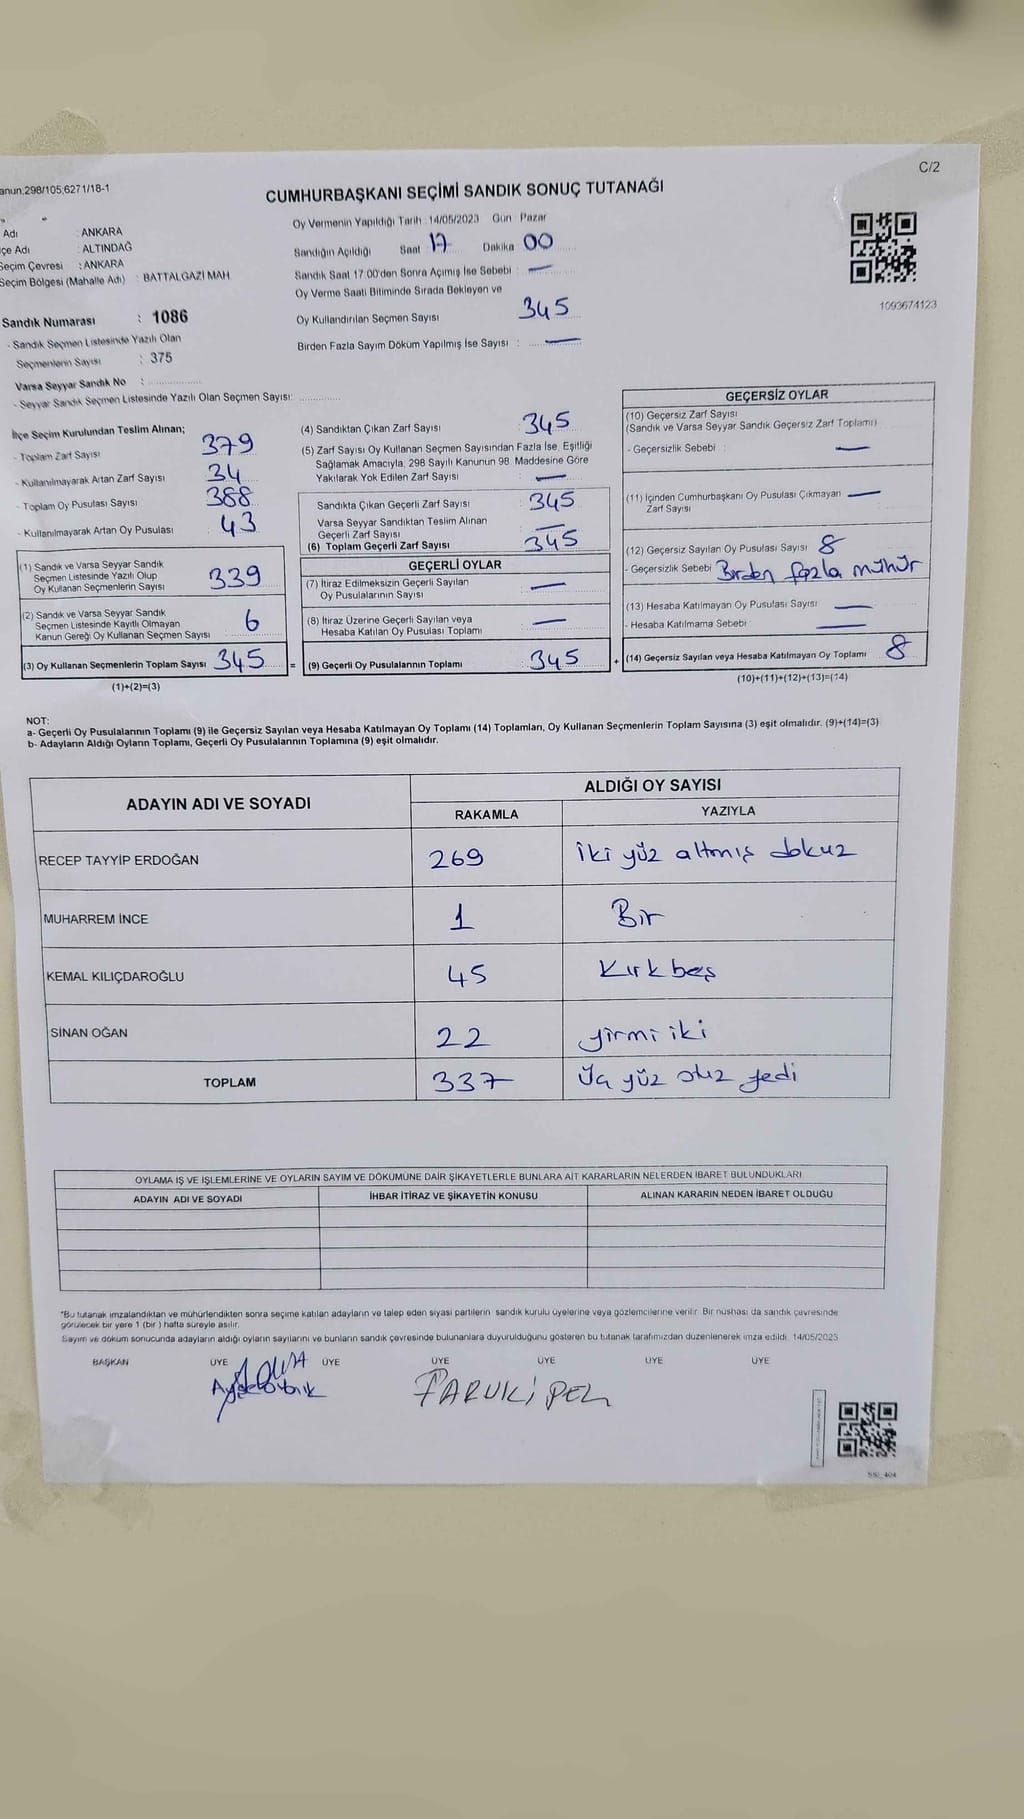 C/2
anun;298/105;6271/18-1
CUMHURBAŞKANI SEÇİMİ SANDIK SONUÇ TUTANAĞI
Adı : ANKARA
çe Adı : ALTINDAĞ
Seçim Çevresi : ANKARA
Seçim Bölgesi (Mahalle Adı) : BATTALGAZİ MAH
Sandık Numarası : 1086
- Sandık Seçmen Listesinde Yazılı Olan
Seçmenlerin Sayısı : 375
Varsa Seyyar Sandık No :
- Seyyar Sandık Seçmen Listesinde Yazılı Olan Seçmen Sayısı:
Oy Vermenin Yapıldığı Tarih : 14/05/2023 Gün : Pazar
Sandığın Açıldığı Saat 17 Dakika 00
Sandık Saat 17:00'den Sonra Açımış İse Sebebi : —
Oy Verme Saati Bitiminde Sırada Bekleyen ve
Oy Kullandırılan Seçmen Sayısı 345
Birden Fazla Sayım Döküm Yapılmış İse Sayısı : —
1093674123
İlçe Seçim Kurulundan Teslim Alınan;
- Toplam Zarf Sayısı 379
- Kullanılmayarak Artan Zarf Sayısı 34
- Toplam Oy Pusulası Sayısı 388
- Kullanılmayarak Artan Oy Pusulası 43
(1) Sandık ve Varsa Seyyar Sandık
Seçmen Listesinde Yazılı Olup
Oy Kullanan Seçmenlerin Sayısı 339
(2) Sandık ve Varsa Seyyar Sandık
Seçmen Listesinde Kayıtlı Olmayan
Kanun Gereği Oy Kullanan Seçmen Sayısı 6
(3) Oy Kullanan Seçmenlerin Toplam Sayısı 345 =
(1)+(2)=(3)
(4) Sandıktan Çıkan Zarf Sayısı 345
(5) Zarf Sayısı Oy Kullanan Seçmen Sayısından Fazla İse, Eşitliği
Sağlamak Amacıyla, 298 Sayılı Kanunun 98. Maddesine Göre
Yakılarak Yok Edilen Zarf Sayısı —
Sandıkta Çıkan Geçerli Zarf Sayısı 345
Varsa Seyyar Sandıktan Teslim Alınan
Geçerli Zarf Sayısı —
(6) Toplam Geçerli Zarf Sayısı 345
GEÇERLİ OYLAR
(7) İtiraz Edilmeksizin Geçerli Sayılan
Oy Pusulalarının Sayısı —
(8) İtiraz Üzerine Geçerli Sayılan veya
Hesaba Katılan Oy Pusulası Toplamı —
(9) Geçerli Oy Pusulalarının Toplamı 345 +
GEÇERSİZ OYLAR
(10) Geçersiz Zarf Sayısı
(Sandık ve Varsa Seyyar Sandık Geçersiz Zarf Toplamı)
- Geçersizlik Sebebi : —
(11) İçinden Cumhurbaşkanı Oy Pusulası Çıkmayan —
Zarf Sayısı
(12) Geçersiz Sayılan Oy Pusulası Sayısı 8
- Geçersizlik Sebebi Birden fazla mühür
(13) Hesaba Katılmayan Oy Pusulası Sayısı —
- Hesaba Katılmama Sebebi —
(14) Geçersiz Sayılan veya Hesaba Katılmayan Oy Toplamı 8
(10)+(11)+(12)+(13)=(14)
NOT:
a- Geçerli Oy Pusulalarının Toplamı (9) ile Geçersiz Sayılan veya Hesaba Katılmayan Oy Toplamı (14) Toplamları, Oy Kullanan Seçmenlerin Toplam Sayısına (3) eşit olmalıdır. (9)+(14)=(3)
b- Adayların Aldığı Oyların Toplamı, Geçerli Oy Pusulalarının Toplamına (9) eşit olmalıdır.
ADAYIN ADI VE SOYADI ALDIĞI OY SAYISI
RAKAMLA YAZIYLA
RECEP TAYYİP ERDOĞAN 269 iki yüz altmış dokuz
MUHARREM İNCE 1 Bir
KEMAL KILIÇDAROĞLU 45 Kırkbeş
SİNAN OĞAN 22 yirmi iki
TOPLAM 337 Üç yüz otuz yedi
OYLAMA İŞ VE İŞLEMLERİNE VE OYLARIN SAYIM VE DÖKÜMÜNE DAİR ŞİKAYETLERLE BUNLARA AİT KARARLARIN NELERDEN İBARET BULUNDUKLARI
ADAYIN ADI VE SOYADI İHBAR İTİRAZ VE ŞİKAYETİN KONUSU ALINAN KARARIN NEDEN İBARET OLDUĞU
*Bu tutanak imzalandıktan ve mühürlendikten sonra seçime katılan adayların ve talep eden siyasi partilerin sandık kurulu üyelerine veya gözlemcilerine verilir. Bir nüshası da sandık çevresinde
görülecek bir yere 1 (bir ) hafta süreyle asılır.
Sayım ve döküm sonucunda adayların aldığı oyların sayılarını ve bunların sandık çevresinde bulunanlara duyurulduğunu gösteren bu tutanak tarafımızdan düzenlenerek imza edildi. 14/05/2023
BAŞKAN ÜYE ÜYE ÜYE ÜYE ÜYE ÜYE
FARUK İPEK